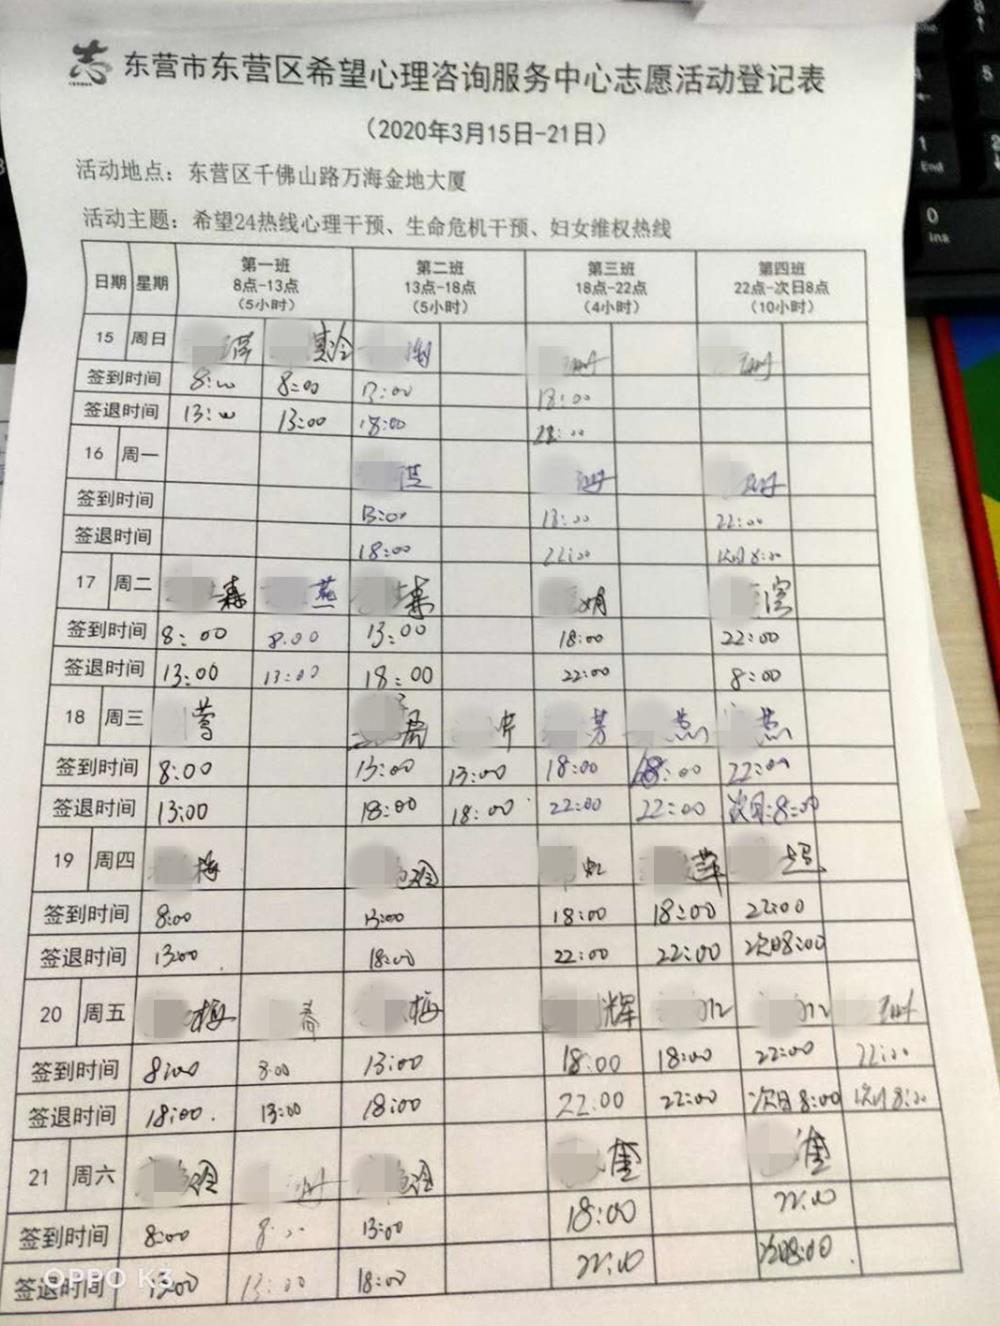 志 东营市东营区希望心理咨询服务中心志愿活动登记表
（2020年3月15日-21日）
活动地点：东营区千佛山路万海金地大厦
活动主题：希望24热线心理干预、生命危机干预、妇女维权热线
日期 星期 第一班 8点-13点 （5小时） 第二班 13点-18点 （5小时） 第三班 18点-22点 （4小时） 第四班 22点-次日8点 （10小时）
15 周日
签到时间 8:00 8:00 13:00 18:00
签退时间 13:00 13:00 18:00 22:00
16 周一
签到时间 13:00 18:00 22:00
签退时间 18:00 22:00 次日8:00
17 周二 森 燕 森 娟 滨
签到时间 8:00 8:00 13:00 18:00 22:00
签退时间 13:00 13:00 18:00 22:00 8:00
18 周三 莺 芳 燕 燕
签到时间 8:00 13:00 13:00 18:00 18:00 22:00
签退时间 13:00 18:00 18:00 22:00 22:00 次日:8:00
19 周四 梅 玲 虹 萍
签到时间 8:00 13:00 18:00 18:00 22:00
签退时间 13:00 18:00 22:00 22:00 次日8:00
20 周五 梅 春 梅 辉
签到时间 8:00 8:00 13:00 18:00 18:00 22:00 22:00
签退时间 18:00. 13:00 18:00 22:00 22:00 次日8:00 次日8:00
21 周六 玲 玲 奎 奎
签到时间 8:00 8:00 13:00 18:00 22:00
签退时间 13:00 13:00 18:00 22:00 次日8:00.
OPPO K3
1
End
0
Ins
5